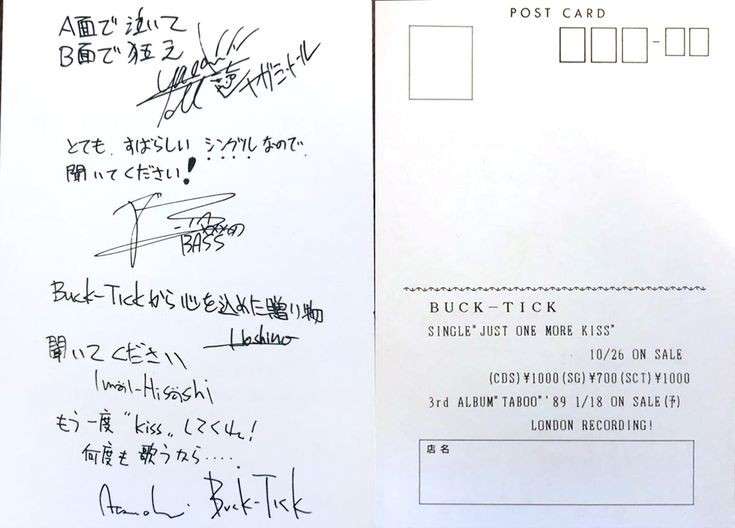 A面で泣いて
B面で狂え
ヤガミ・トール
とても、すばらしい シングル なので、
聞いてください!
BASS
Buck-Tickから心を込めた贈り物
Hoshino
聞いてください
Imai-Hisashi
もう一度 "kiss„ してくれ!
何度も歌うなら.....
Buck-Tick
POST CARD
BUCK-TICK
SINGLE"JUST ONE MORE KISS"
10/26 ON SALE
(CDS)¥1000(SG)¥700(SCT)¥1000
3rd ALBUM"TABOO"'89 1/18 ON SALE(予)
LONDON RECORDING!
店名